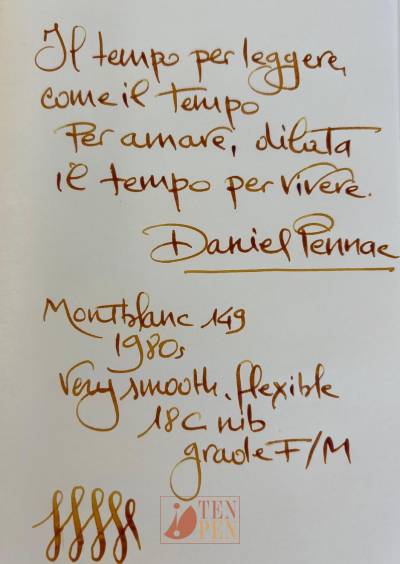 Il tempo per leggere,
come il tempo
Per amare, dilata
il tempo per vivere.
Daniel Pennac
Montblanc 149
1980s
Very smooth. flexible
18C nib
grade F/M
TEN
PEN